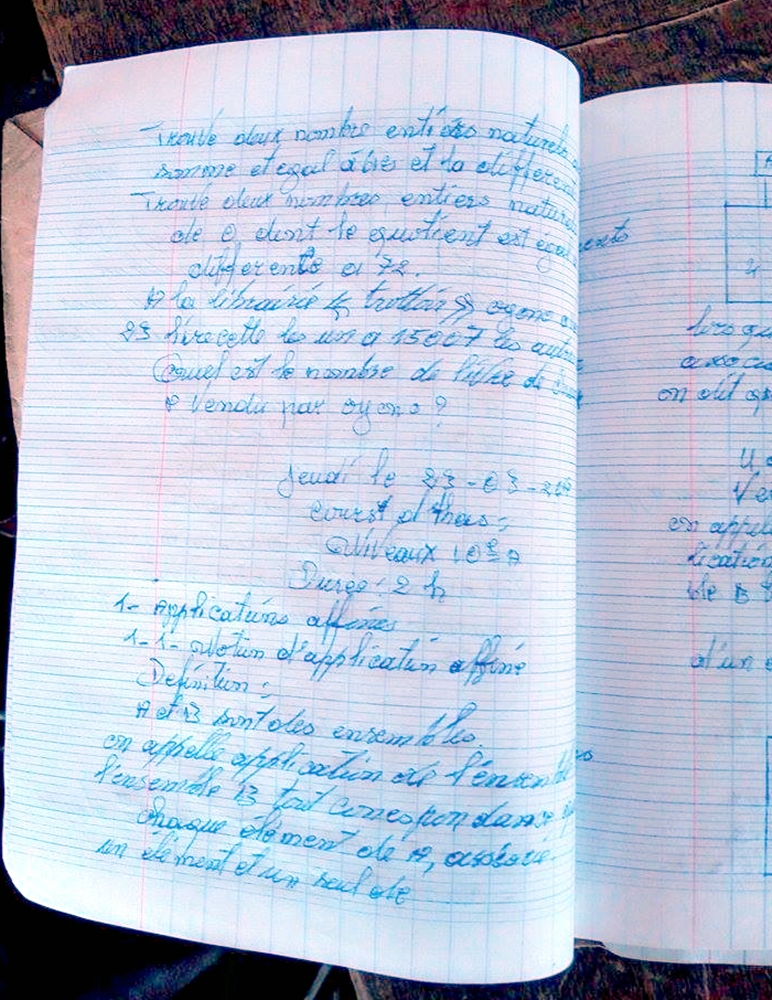 Trouvé deux nombre entiers naturels
somme et egal à et la différen
Trouvé deux nombres entiers nature
de 0 dont le quotient est égal
differente à 72.
A la librairie trottoir oyono
23 livre cette les un a 1500 F les autre
Quel est le nombre de livre de
vendu par oyono ?
Jeudi le 23 - 03 - 
cours d
Niveaux 10e A
Durée : 2 h
1- Applications affines
1-1- Notion d'application affine
Definition :
A et B sont des ensembles.
on appelle application de l'ensemble
l'ensemble B tout correspondance
chaque élément de A, associe
un élément et un seul de
lors qu
associe
on dit q
U
Ve
on appell
lication
de B
d'un